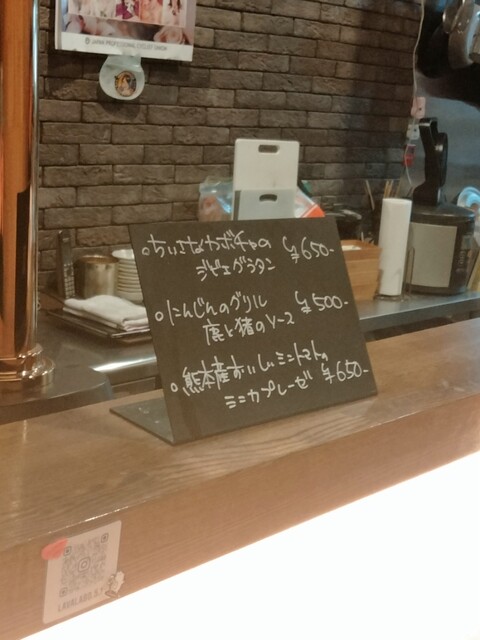 JAPAN PROFESSIONAL CYCLIST UNION
○ちいさなカボチャの ¥650-
ジビエグラタン
○にんじんのグリル ¥500-
鹿と猪のソース
○熊本産おいしいミニトマトの
ミニカプレーゼ ¥650-